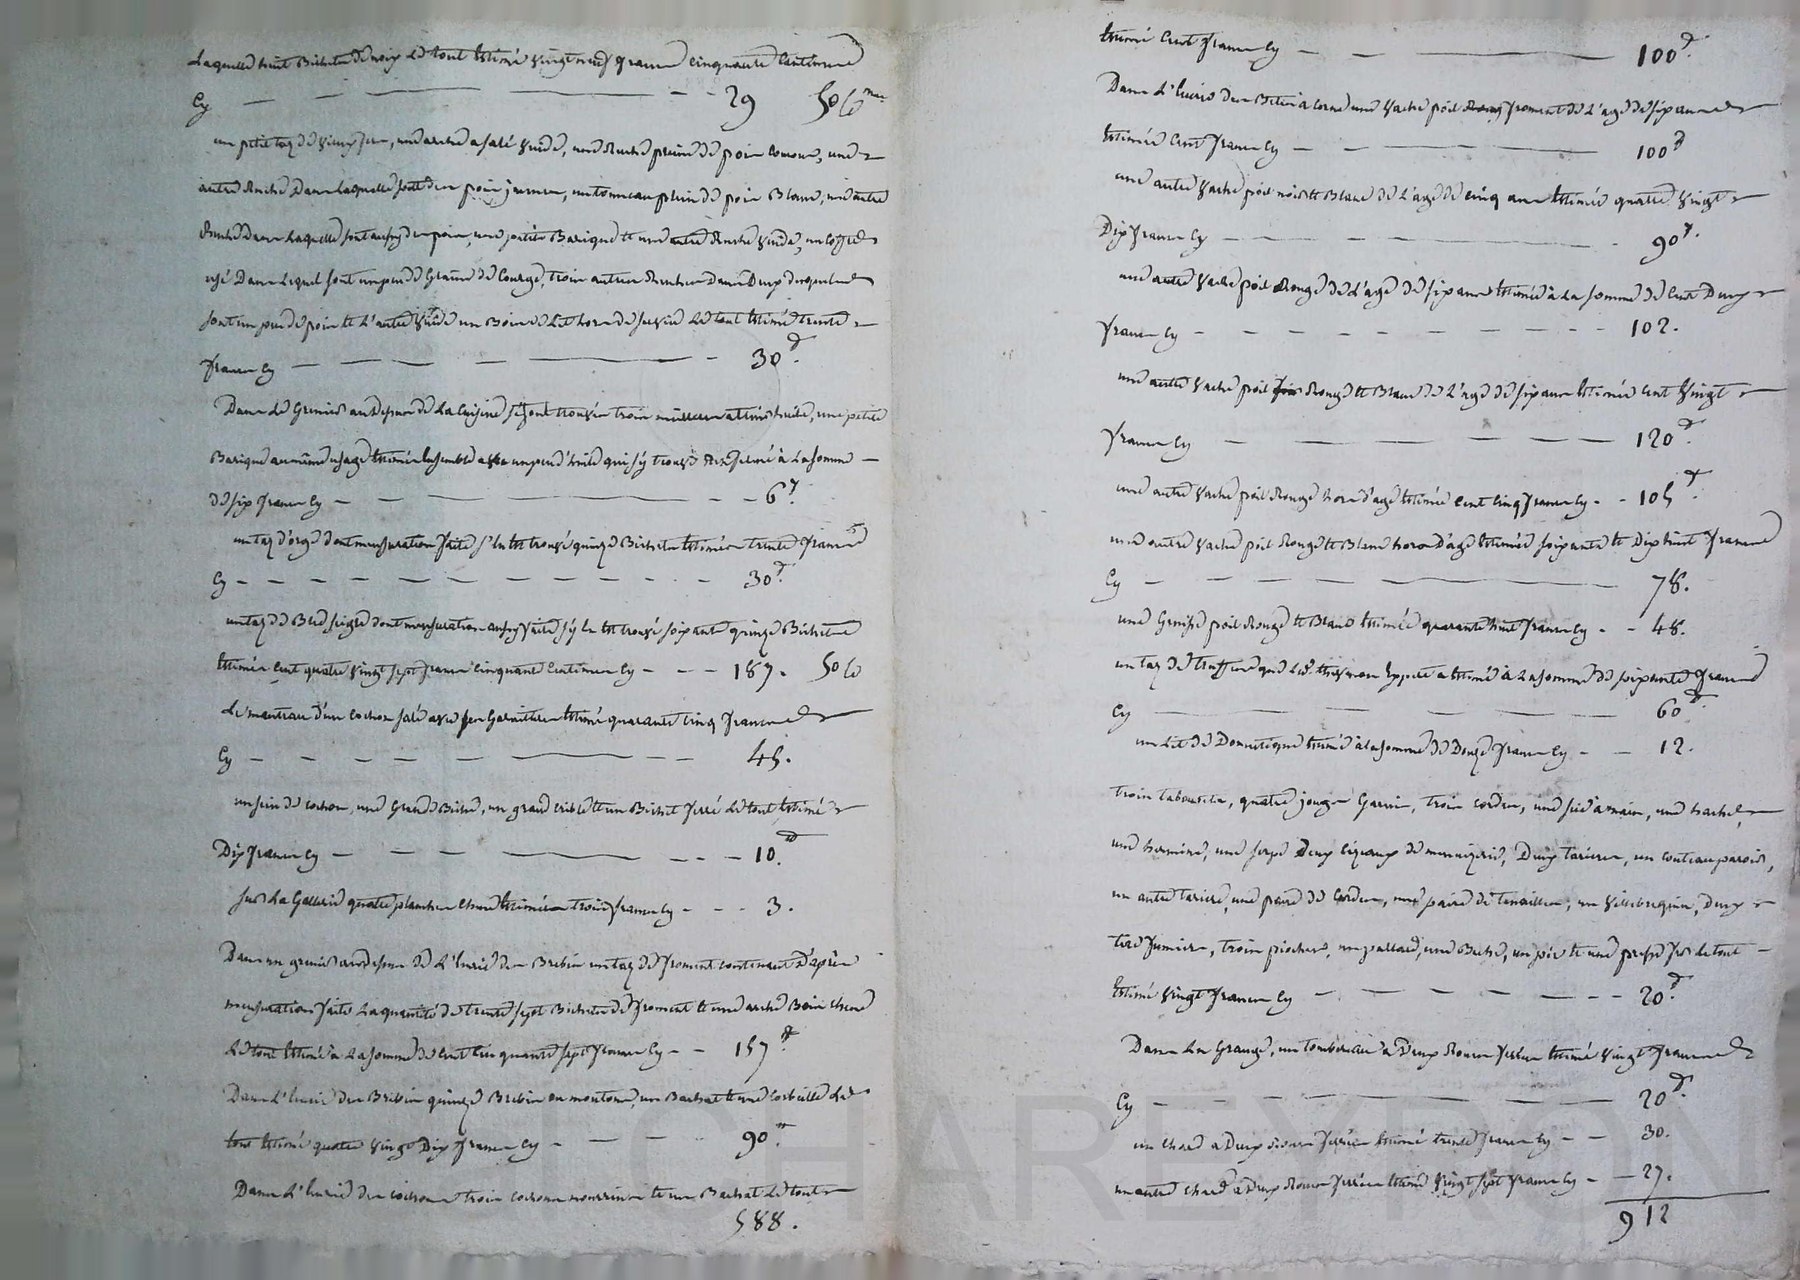 Laquelle huit Bichets de noix Le tout Estimé vingt neuf francs cinquante Centimes
Cy 29 50 C
un petit taz de vieux fer, une arche a salé vuide, une Ruche pleine de pois Comuns, une
autre Ruche Dans Laquelle sont des pois jaunes, un tonneau plein de pois Blanc, une autre
Ruche Dans Laquelle sont aussy des pois, une petite Barique et une autre Ruche vuide, un Coffre
usé Dans Lequel sont un peu de Graine de Courge, trois autres Ruches Dans Deux desquelles
sont un peu de pois et L'autre vuide un Bois de Lit hors de service Le tout Estimé trente
francs Cy 30
Dans Le Grenier au dessus de La Cuisine s'y sont trouvés trois huile, une petite
Barique au même usage Estimés Ensemble avec un peu d'huile qui s'y trouve à La somme
de six francs Cy 6
un taz d'orge dont mensuration faite s'en Est trouvé quinze Bichets Estimés trente francs
Cy 30
un taz de Bled seigle dont mensuration aussy faite s'y En Est trouvé soixante quinze Bichets
Estimés Cent quatre vingt sept francs Cinquante Centimes Cy 187. 50 C
Le manteau d'un cochon salé avec ses Garnitures Estimé quarante Cinq francs
Cy 45.
un sein de cochon, une Grande , un grand crible et un Bichet ferré Le tout Estimé
Dix francs Cy 10.
sur La Gallerie quatre planches Chene Estimées trois francs Cy 3.
Dans un grenier au dessus de L'Ecurie des Brebis un taz de froment contenant D'après
mensuration faite La quantité de trente sept Bichets de froment et une arche Bois chene
Le tout Estimé à La somme de Cent Cinquante sept francs Cy 157
Dans L'Ecurie des Brebis quinze Brebis ou moutons, un Bachat et une Corbeille Le
tout Estimé quatre vingt Dix francs Cy 90
Dans L'Ecurie des cochons trois cochons nourrins et un Bachat Le tout
588.
Estimé Cent francs Cy 100
Dans L'Ecurie des Betes à corne une vache poil froment de L'age de six ans
Estimée Cent francs Cy 100
une autre vache poil noir et Blanc de L'age de cinq ans Estimée quatre vingt
Dix francs Cy 90
une autre vache poil Rouge de L'age de six ans Estimée à La somme de Cent Deux
francs Cy 102.
une autre vache poil Rouge et Blanc de L'age de six ans Estimée Cent vingt
francs Cy 120
une autre vache poil Rouge hors d'age Estimée Cent Cinq francs Cy 105
une autre vache poil Rouge et Blanc hors D'age Estimée soixante et Dix huit francs
Cy 78.
une Genisse poil Rouge et Blanc Estimée quarante huit francs Cy 48.
un taz de truffes que a Estimé à La somme de soixante francs
Cy 60
un Lit de Domestique Estimé à La somme de Douze francs Cy 12.
trois tabourets, quatre jougs Garnis, trois cordes, une scie à main, une hache,
une hermine, une serpe Deux Cizeaux de menuizerie, Deux tarieres, un couteau paroir,
un autre tariere, une paire de Cordes, une paire de tenailles, un villebrequin, Deux
tire fumiers, trois pioches, un , une Beche, un pic et une presse Le tout
Estimé vingt francs Cy 20
Dans La Grange, un tombereau à Deux Roues ferrées Estimé vingt francs
Cy 20
un Chard a Deux Roues ferrées Estimé trente francs Cy 30.
un autre Chard à Deux Roues ferrées Estimé vingt sept francs Cy 27.
912
CHAREYRON